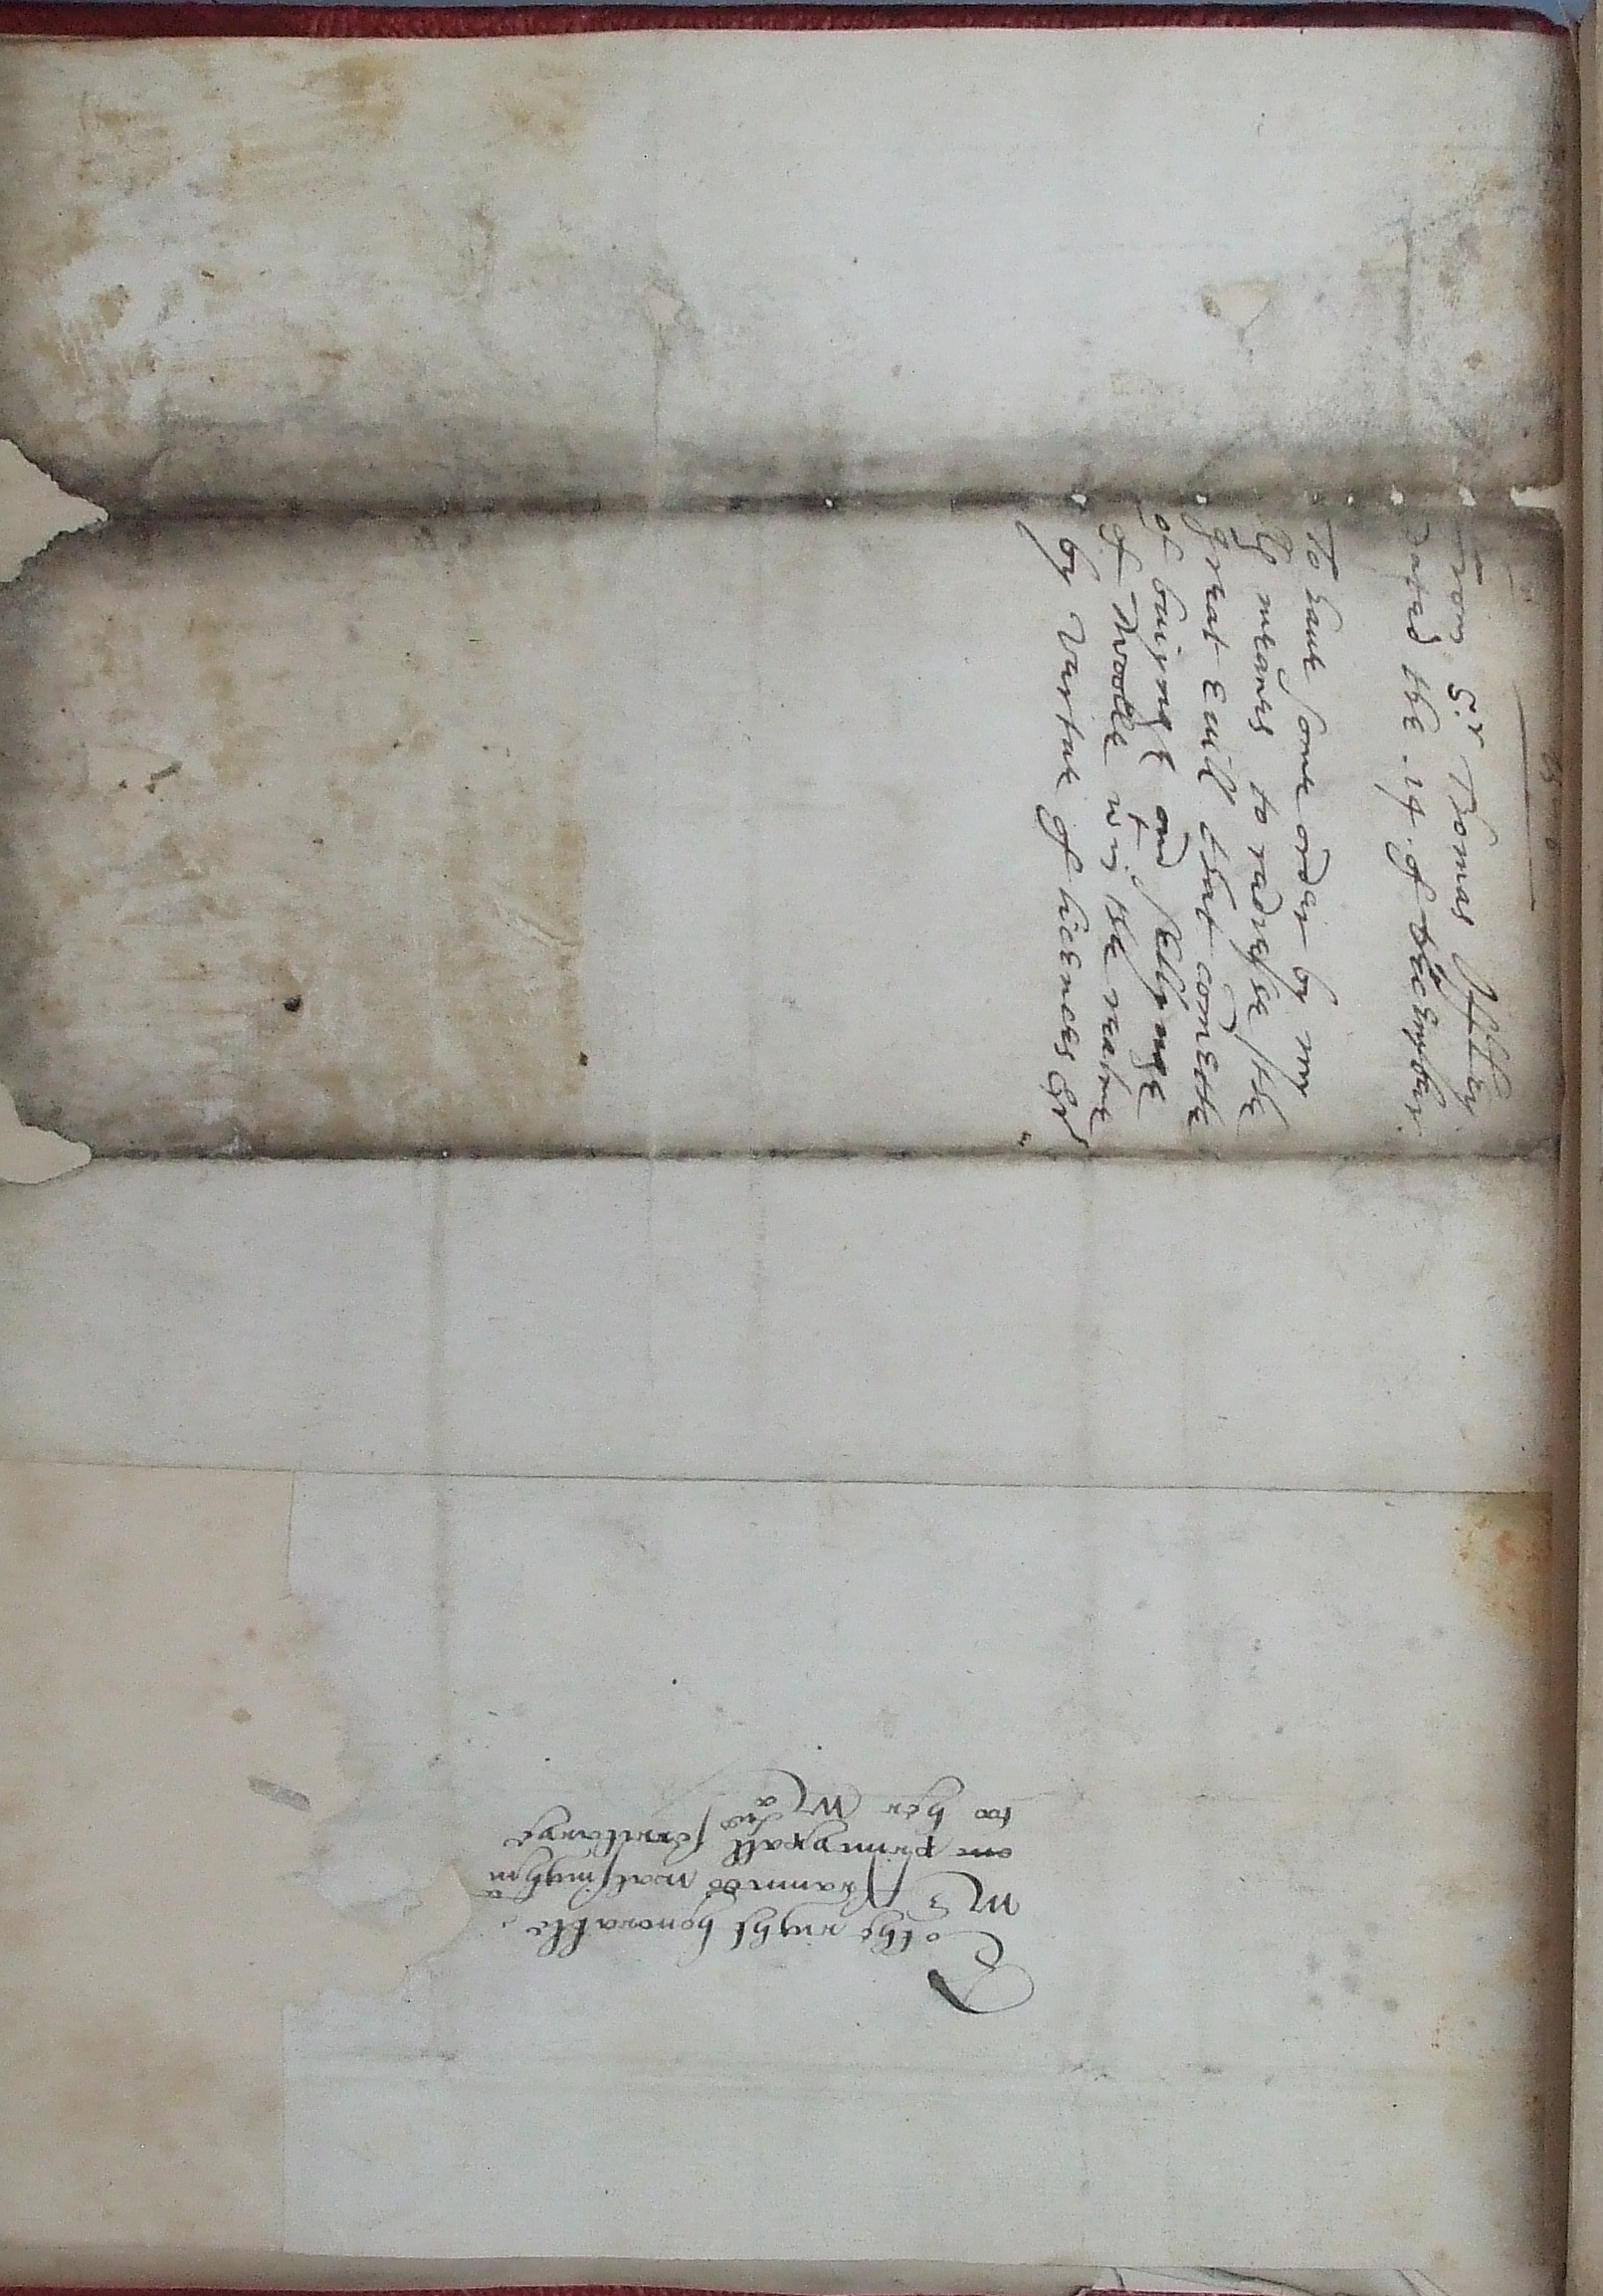 from Sr Thomas Offley
dated the .14. of december.
To haue some order by my
LL meanes to radresse the
great euill that comethe
of buiynge and sellynge
of Woolle wtin the realme
by vertue of licences &c
To the right honorable
Mr ffrauncis walsingham
one principall secretarye
too her Ma